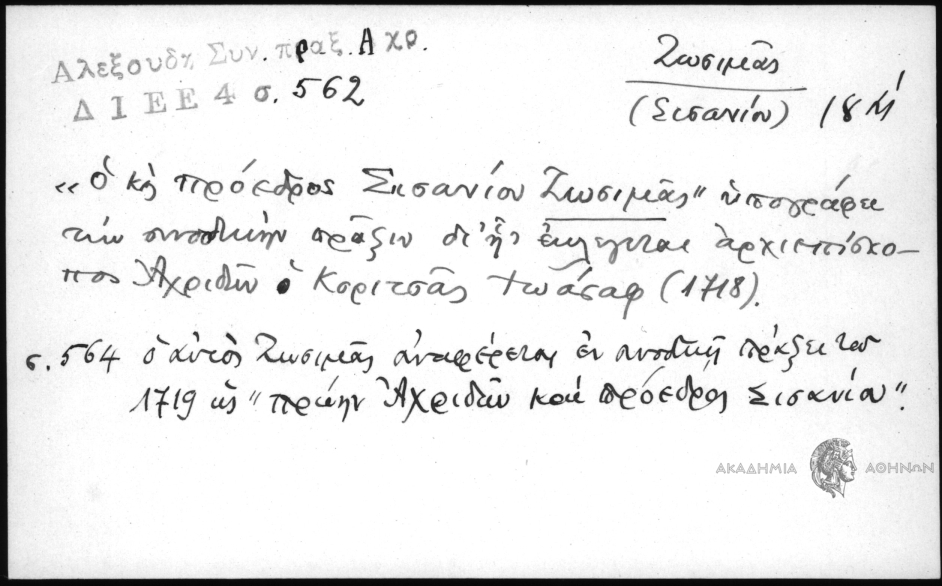 Αλεξουδη Συν. πραξ. Αχρ.
ΔΙΕΕ 4 σ. 562
Ζωσιμᾶς
(Σισανίου) 18
„ὁ κὴ πρόεδρος Σισανίου Ζωσιμᾶς" ὑπογράφει
τὴν συνοδικὴν πρᾶξιν δι' ἧς ἐκλέγεται ἀρχιεπίσκο-
πος Ἀχριδῶν ὁ Κοριτσᾶς Ἰωάσαφ (1718).
σ. 564 ὁ αὐτὸς Ζωσιμᾶς ἀναφέρεται ἐν συνοδικῇ πράξει τοῦ
1719 ὡς "πρώην Ἀχριδῶν καὶ πρόεδρος Σισανίου".
ΑΚΑΔΗΜΙΑ ΑΘΗΝΩΝ